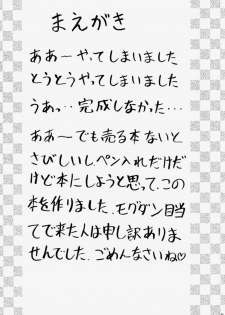 まえがき
ああーやってしまいました
とうとうやってしまいました
うあっ‥完成しなかった…
ああ～でも売る本ないと
さびしいしペン入れだけだ
けど本にしようと思って、この
本を作りました、モグダン目当
てで来た人は申し訳ありま
せんでした、ごめんなさいね♡